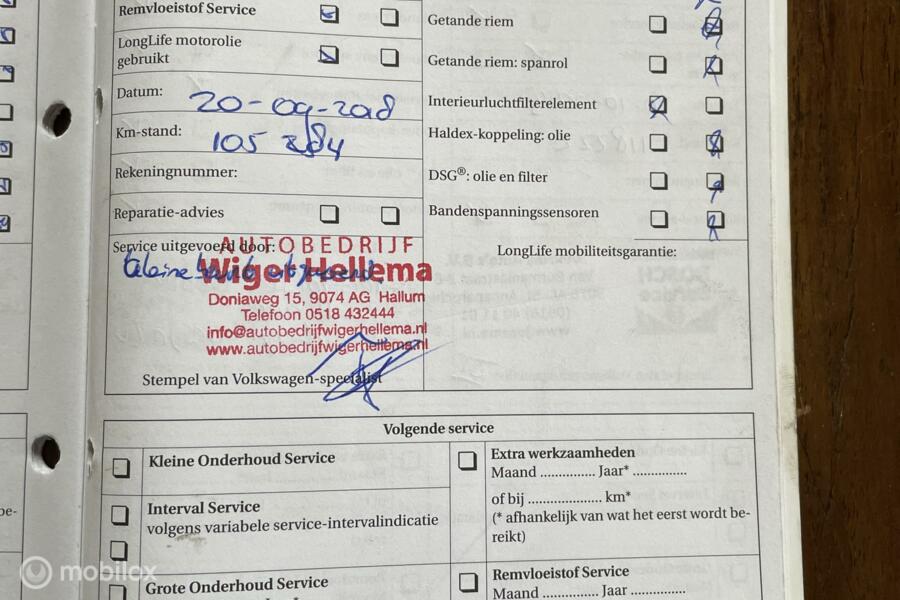 Remvloeistof Service
LongLife motorolie
gebruikt
Datum: 20-09-2018
Km-stand: 105 284
Rekeningnummer:
Reparatie-advies
Service uitgevoerd door:
AUTOBEDRIJF
Wiger Hellema
Doniaweg 15, 9074 AG Hallum
Telefoon 0518 432444
info@autobedrijfwigerhellema.nl
www.autobedrijfwigerhellema.nl
Stempel van Volkswagen-specialist
Getande riem
Getande riem: spanrol
Interieurluchtfilterelement
Haldex-koppeling: olie
DSG®: olie en filter
Bandenspanningssensoren
LongLife mobiliteitsgarantie:
Volgende service
Kleine Onderhoud Service
Interval Service
volgens variabele service-intervalindicatie
Grote Onderhoud Service
Extra werkzaamheden
Maand .............. Jaar* ..............
of bij ................... km*
(* afhankelijk van wat het eerst wordt be-
reikt)
Remvloeistof Service
Maand .............. Jaar ..............
be-
mobilox